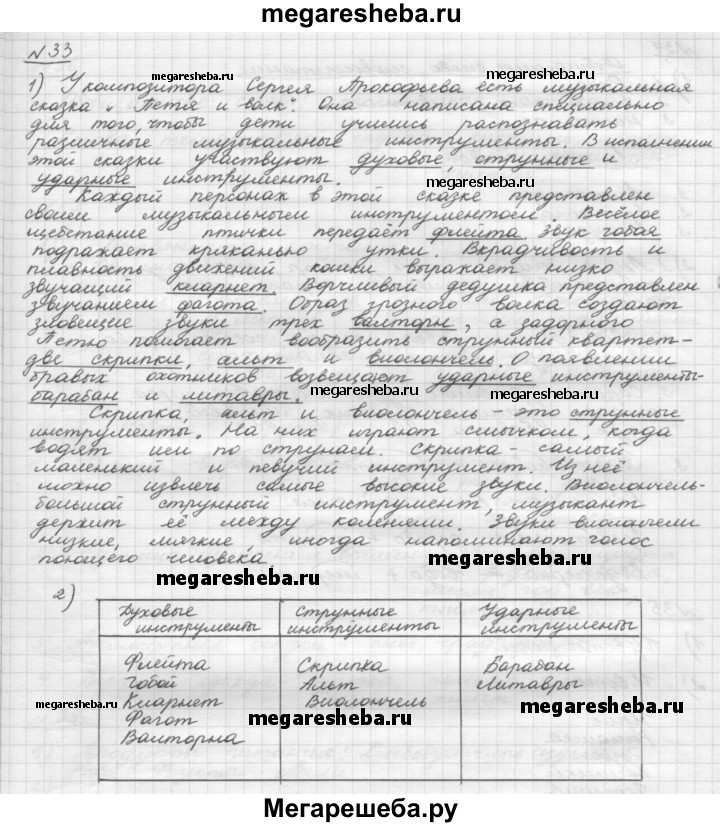 megaresheba.ru
№33
1) У композитора Сергея Прокофьева есть музыкальная
megaresheba.ru
megaresheba.ru
сказка „Петя и волк". Она написана специально
для того, чтобы дети учились распознавать
различные музыкальные инструменты. В исполнении
этой сказки участвуют духовые, струнные и
ударные инструменты.
megaresheba.ru
Каждый персонаж в этой сказке представлен
своим музыкальным инструментом. Весёлое
щебетание птички передаёт флейта. Звук гобоя
подражает кряканью утки. Вкрадчивость и
плавность движений кошки выражает низко
звучащий кларнет. Ворчливый дедушка представлен
megaresheba.ru
megaresheba.ru
звучанием фагота. Образ грозного волка создают
зловещие звуки трех валторн, а задорного
Петю помогает вообразить струнный квартет-
две скрипки, альт и виолончель. О появлении
бравых охотников возвещают ударные инструменты-
барабан и литавры.
megaresheba.ru
Скрипка, альт и виолончель - это струнные
инструменты. На них играют смычком, когда
водят им по струнам. Скрипка - самый
маленький и певучий инструмент. Из неё
можно извлечь самые высокие звуки. Виолончель-
большой струнный инструмент, музыкант
держит её между коленями. Звуки виолончели
низкие, мягкие, иногда напоминают голос
поющего человека.
megaresheba.ru
megaresheba.ru
2)
Духовые инструменты
Струнные инструменты
Ударные инструменты
Флейта
Гобой
Кларнет
Фагот
Валторна
Скрипка
Альт
Виолончель
Барабан
Литавры
megaresheba.ru
megaresheba.ru
megaresheba.ru
Мегарешеба.ру